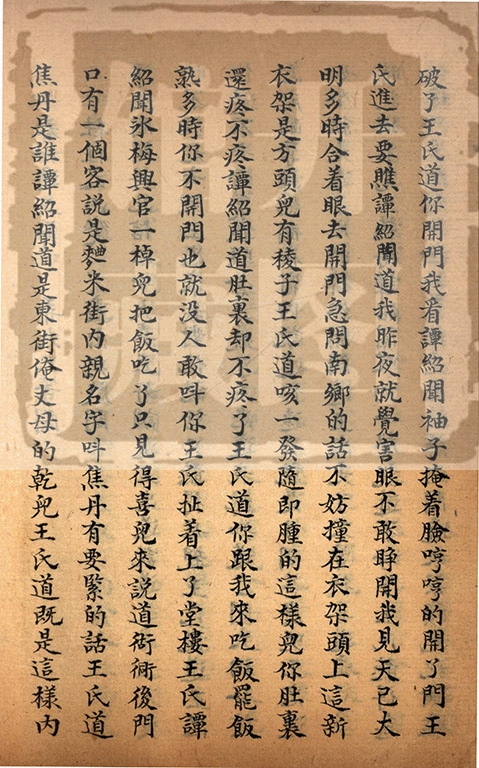 破了王氏道你開門我看譚紹聞袖子掩着臉哼哼的開了門王
氏進去要瞧譚紹聞道我昨夜就覺害眼不敢睜開我見天已大
明多時合着眼去開門急問南鄉的話不妨撞在衣架頭上這新
衣架是方頭兒有稜子王氏道咳一發隨即腫的這樣兒你肚裏
還疼不疼譚紹聞道肚裏却不疼了王氏道你跟我來吃飯罷飯
熟多時你不開門也就没人敢呌你王氏扯着上了堂樓王氏譚
紹聞冰梅興官一棹兒把飯吃了只見得喜兒來説道衚衕後門
口有一個客説是麯米街内親名字呌焦丹有要緊的話王氏道
焦丹是誰譚紹聞道是東街俺丈母的乾兒王氏道既是這樣内